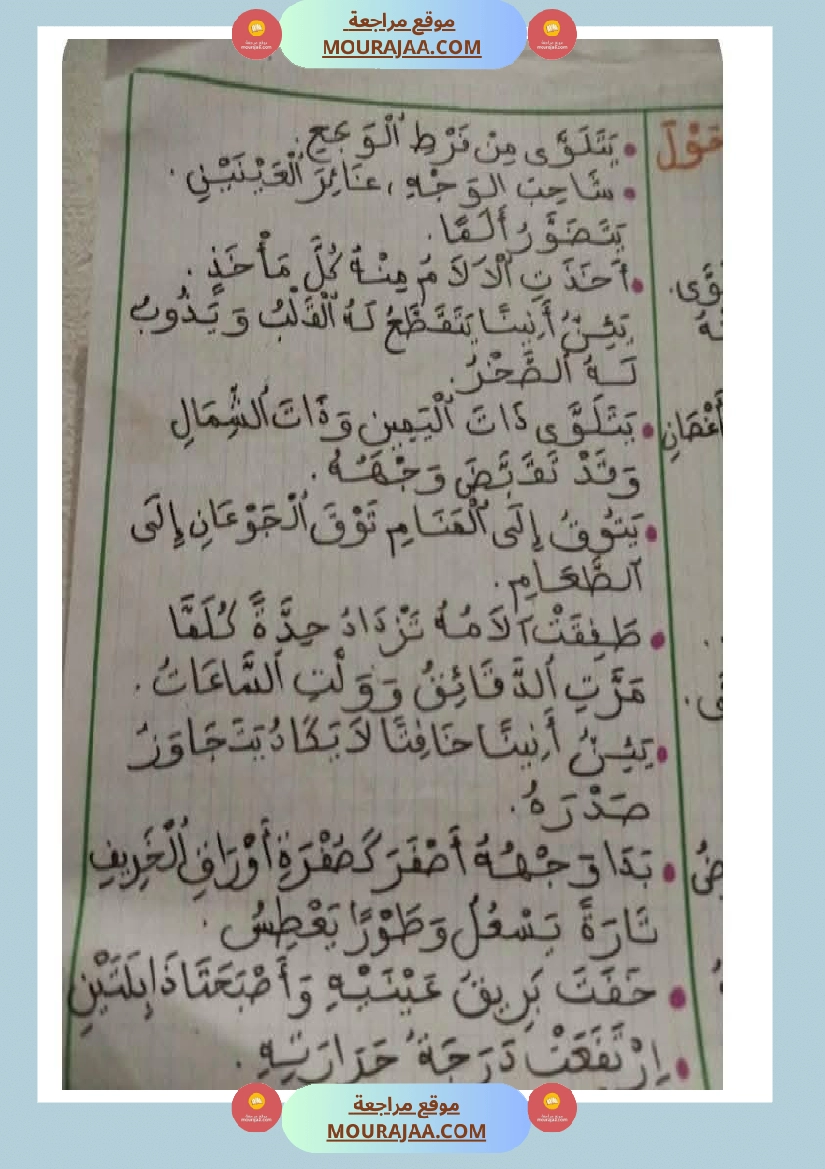 موقع مراجعة
MOURAJAA.COM
حَوْلَ
• يَتَلَوَّى مِنْ فَرْطِ ٱلْوَجَعِ.
• شَاحِبَ الوَجْهِ، غَائِرَ ٱلْعَيْنَيْنِ.
يَتَضَوَّرُ أَلَمًا.
• أَخَذَتِ ٱلْآلَامُ مِنْهُ كُلَّ مَأْخَذٍ.
يَئِنُّ أَنِينًا يَتَقَطَّعُ لَهُ ٱلْقَلْبُ وَيَذُوبُ
لَهُ ٱلصَّخْرُ.
أَغْصَانِ
• يَتَلَوَّى ذَاتَ ٱلْيَمِينِ وَذَاتَ ٱلشِّمَالِ
وَقَدْ تَقَبَّضَ وَجْهُهُ.
• يَتُوقُ إِلَى ٱلْمَنَامِ تَوْقَ ٱلْجَوْعَانِ إِلَى
ٱلطَّعَامِ.
• طَفِقَتْ آلَامُهُ تَزْدَادُ حِدَّةً كُلَّمَا
مَرَّتِ ٱلدَّقَائِقُ وَوَلَّتِ ٱلسَّاعَاتُ.
• يَئِنُّ أَنِينًا خَافِتًا لَا يَكَادُ يَتَجَاوَزُ
صَدْرَهُ.
• بَدَا وَجْهُهُ أَصْفَرَ كَصُفْرَةِ أَوْرَاقِ ٱلْخَرِيفِ
تَارَةً يَسْعُلُ وَطَوْرًا يَعْطِسُ.
• خَفَتَ بَرِيقُ عَيْنَيْهِ وَأَصْبَحَتَا ذَابِلَتَيْنِ
• اِرْتَفَعَتْ دَرَجَةُ حَرَارَتِهِ.
موقع مراجعة
MOURAJAA.COM